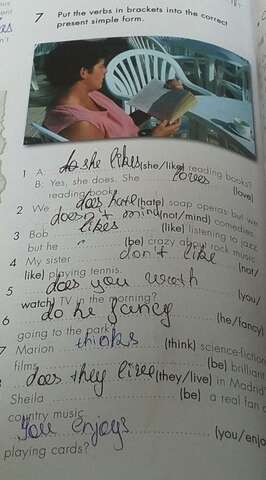 7 Put the verbs in brackets into the correct
present simple form.
1 A: do she likes (she/like) reading books?
B: Yes, she does. She loves (love)
reading books.
2 We does hate (hate) soap operas but we
doesn't mind (not/mind) comedies.
3 Bob likes (like) listening to jazz
but he (be) crazy about rock music.
4 My sister don't like (not/
like) playing tennis.
5 does you watch (you/
watch) TV in the morning?
6 do he fancy (he/fancy)
going to the park?
7 Marion thinks (think) science-fiction
films (be) brilliant
8 does they live (they/live) in Madrid?
Sheila (be) a real fan of
country music.
You enjoys (you/enjo
playing cards?